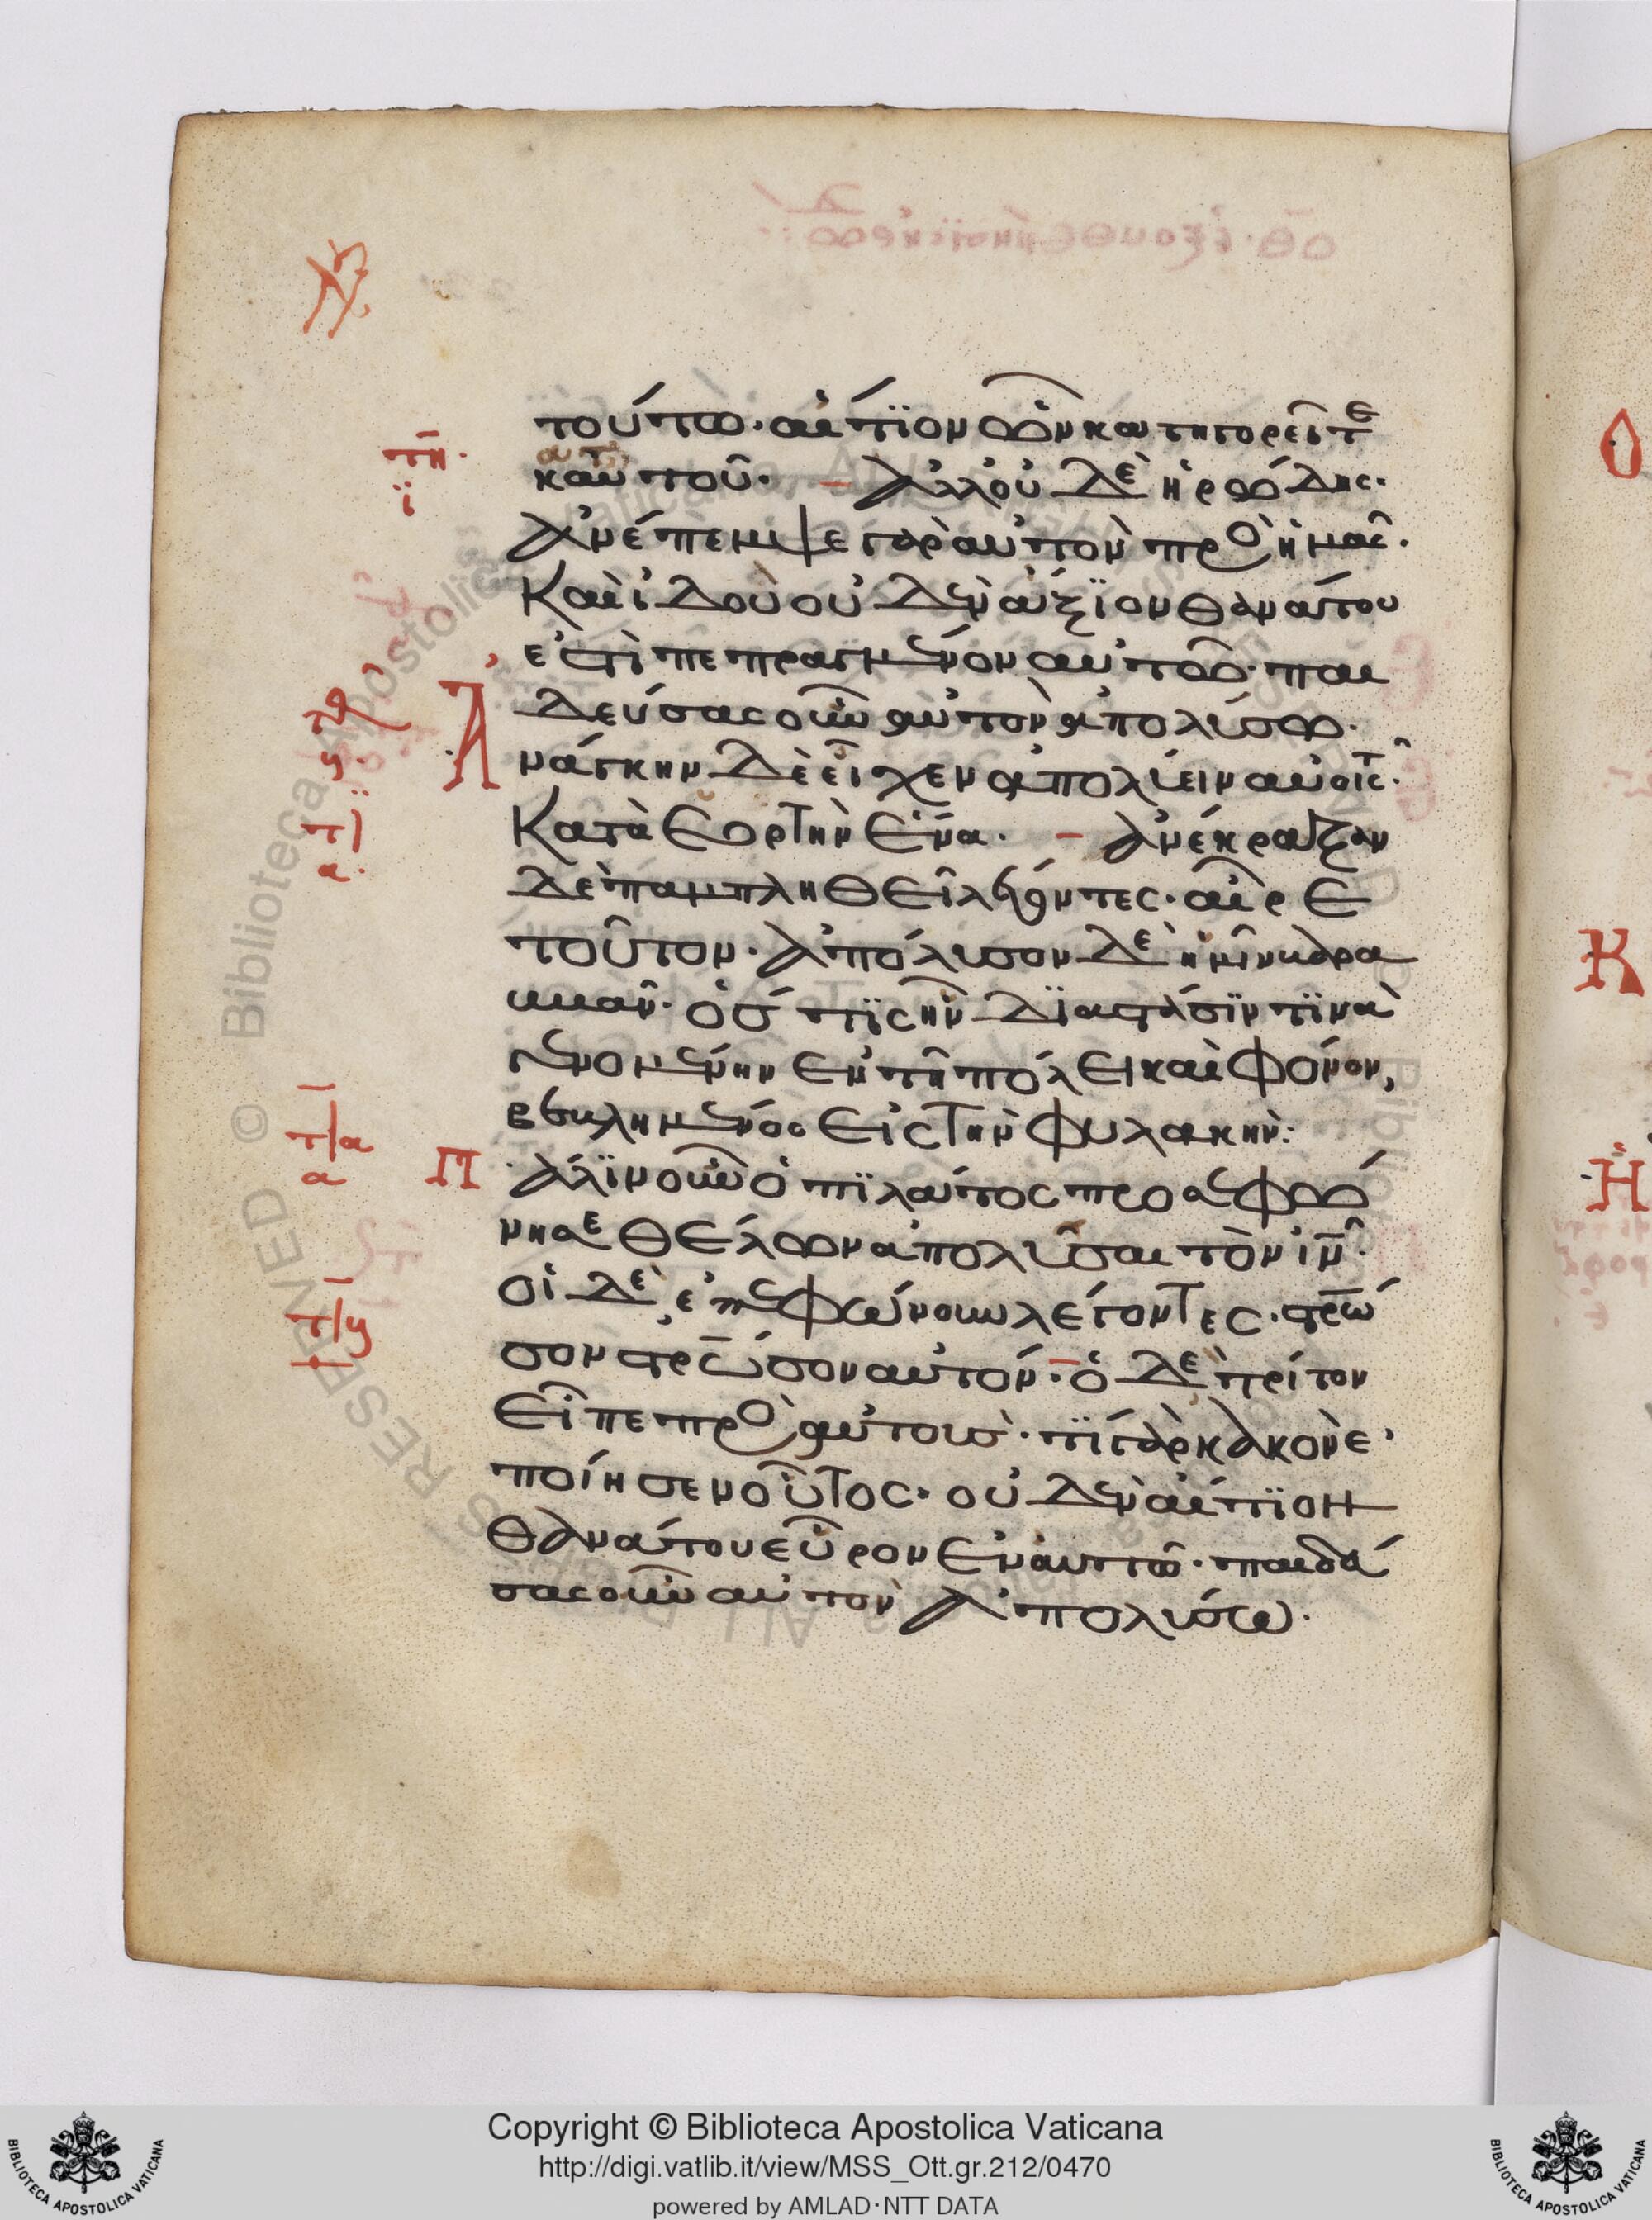 τούτω· αἴτιον ὧν κατηγορεῖτε
κατ αὐτοῦ· – Ἀλλ οὐδὲ ἡρώδης·
τη· ϊ
Ἀνέπεμψε γὰρ αὐτὸν πρὸ ἡμᾶς·
Καὶ ἰδοὺ οὐδὲν ἄξϊον θανάτου
ἐστὶ πεπραγμένον αὐτῶ· παι
δεύσας οὖν αὐτὸν ἀπολύσω·
Ἀ νάγκην δὲ εἶχεν ἀπολύειν αὐτοῖς·
Κατὰ ἑορτὴν ἕνα· – Ἀνέκραζον
δὲ παμπληθεὶ λέγοντες· αἶρε
τοῦτον· Ἀπόλυσον δὲ ἡμῖν βαρα
ββᾶν· ὅστϊς ἦν δϊα στάσϊν τϊνὰ
γενομένην ἐν τῆ πόλει καὶ φόνον,
βεβλημένος εἰς τὴν φυλακήν:
τια α
Π άλϊν οὖν ὁ πϊλάτος προσεφώ
νησε θέλων ἀπολῦσαι τὸν ιν·
οἱ δὲ ἐπεφώνουν λέγοντες· σταύρω
σον σταύρωσον αὐτόν· – ὁ δὲ τρίτον
εἶπε πρὸ αὐτούς· τϊ γὰρ κακὸν ἐ
ποίησεν οὗτος· οὐδὲν αἴτϊον
θανάτου εὗρον ἐν αὐτῶ· παιδεύ
σας οὖν αὐτὸν Ἀπολύσω·
Ο
Κ
Ἡ
Copyright © Biblioteca Apostolica Vaticana
http://digi.vatlib.it/view/MSS_Ott.gr.212/0470
powered by AMLAD·NTT DATA
BIBLIOTECA APOSTOLICA VATICANA
BIBLIOTECA APOSTOLICA VATICANA